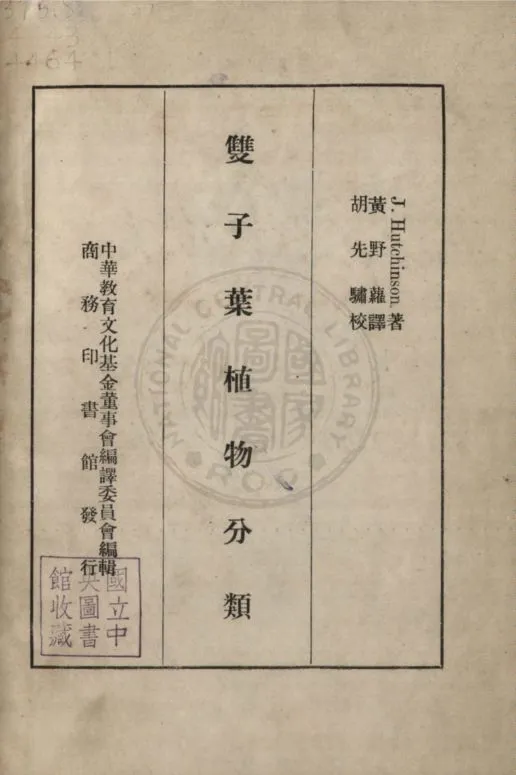 J. Hutchinson 著
黃野蘿譯
胡先驌校
雙子葉植物分類
中華教育文化基金董事會編譯委員會編輯
商務印書館發行
國立中
央圖書
館收藏
NATIONAL CENTRAL LIBRARY
ROC
國家
圖書
館